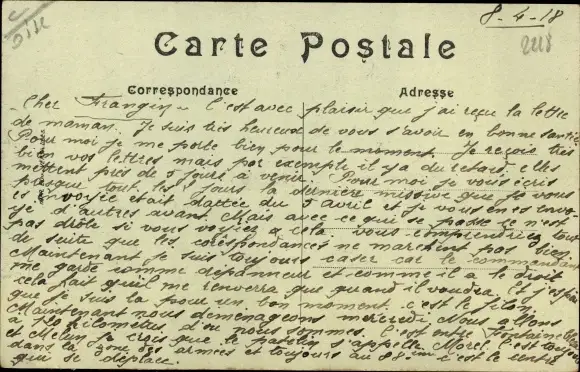 8-4-18
2218
Carte Postale
Correspondance
Adresse
Cher Frangin - C'est avec plaisir que j'ai reçu la lettre
de maman. Je suis très heureux de vous savoir en bonne santé
Pour moi je me porte bien pour le moment. Je reçois très
bien vos lettres mais par exemple il y a du retard, elles
mettent près de 5 jours à venir. Pour moi je vous écris
presque tout les jours la dernière missive que je vous
ai envoyée était dactée du 5 avril et je vous en ai envo
yé d'autres avant. Mais avec ce qui se passe ce n'est
pas drôle si vous voyiez cela vous comprendriez tout
de suite que les corespondances ne marchent pas bien
Maintenant je suis toujours caser car le commandant
me garde comme dépanneur et comme il a le droit
cela fait qu'il me renverra que quand il voudra. Et j'espère
que je suis la pour un bon moment c'est le filon
Maintenant nous demenageons mercredi Nous allons
à kilometres d'ou nous sommes. C'est entre Fontainebleau
et Melun je crois que le patelin s'appelle Morel. C'est toujours
dans la zone des armées et toujours au 88 ème c'est le centre
qui se déplace.